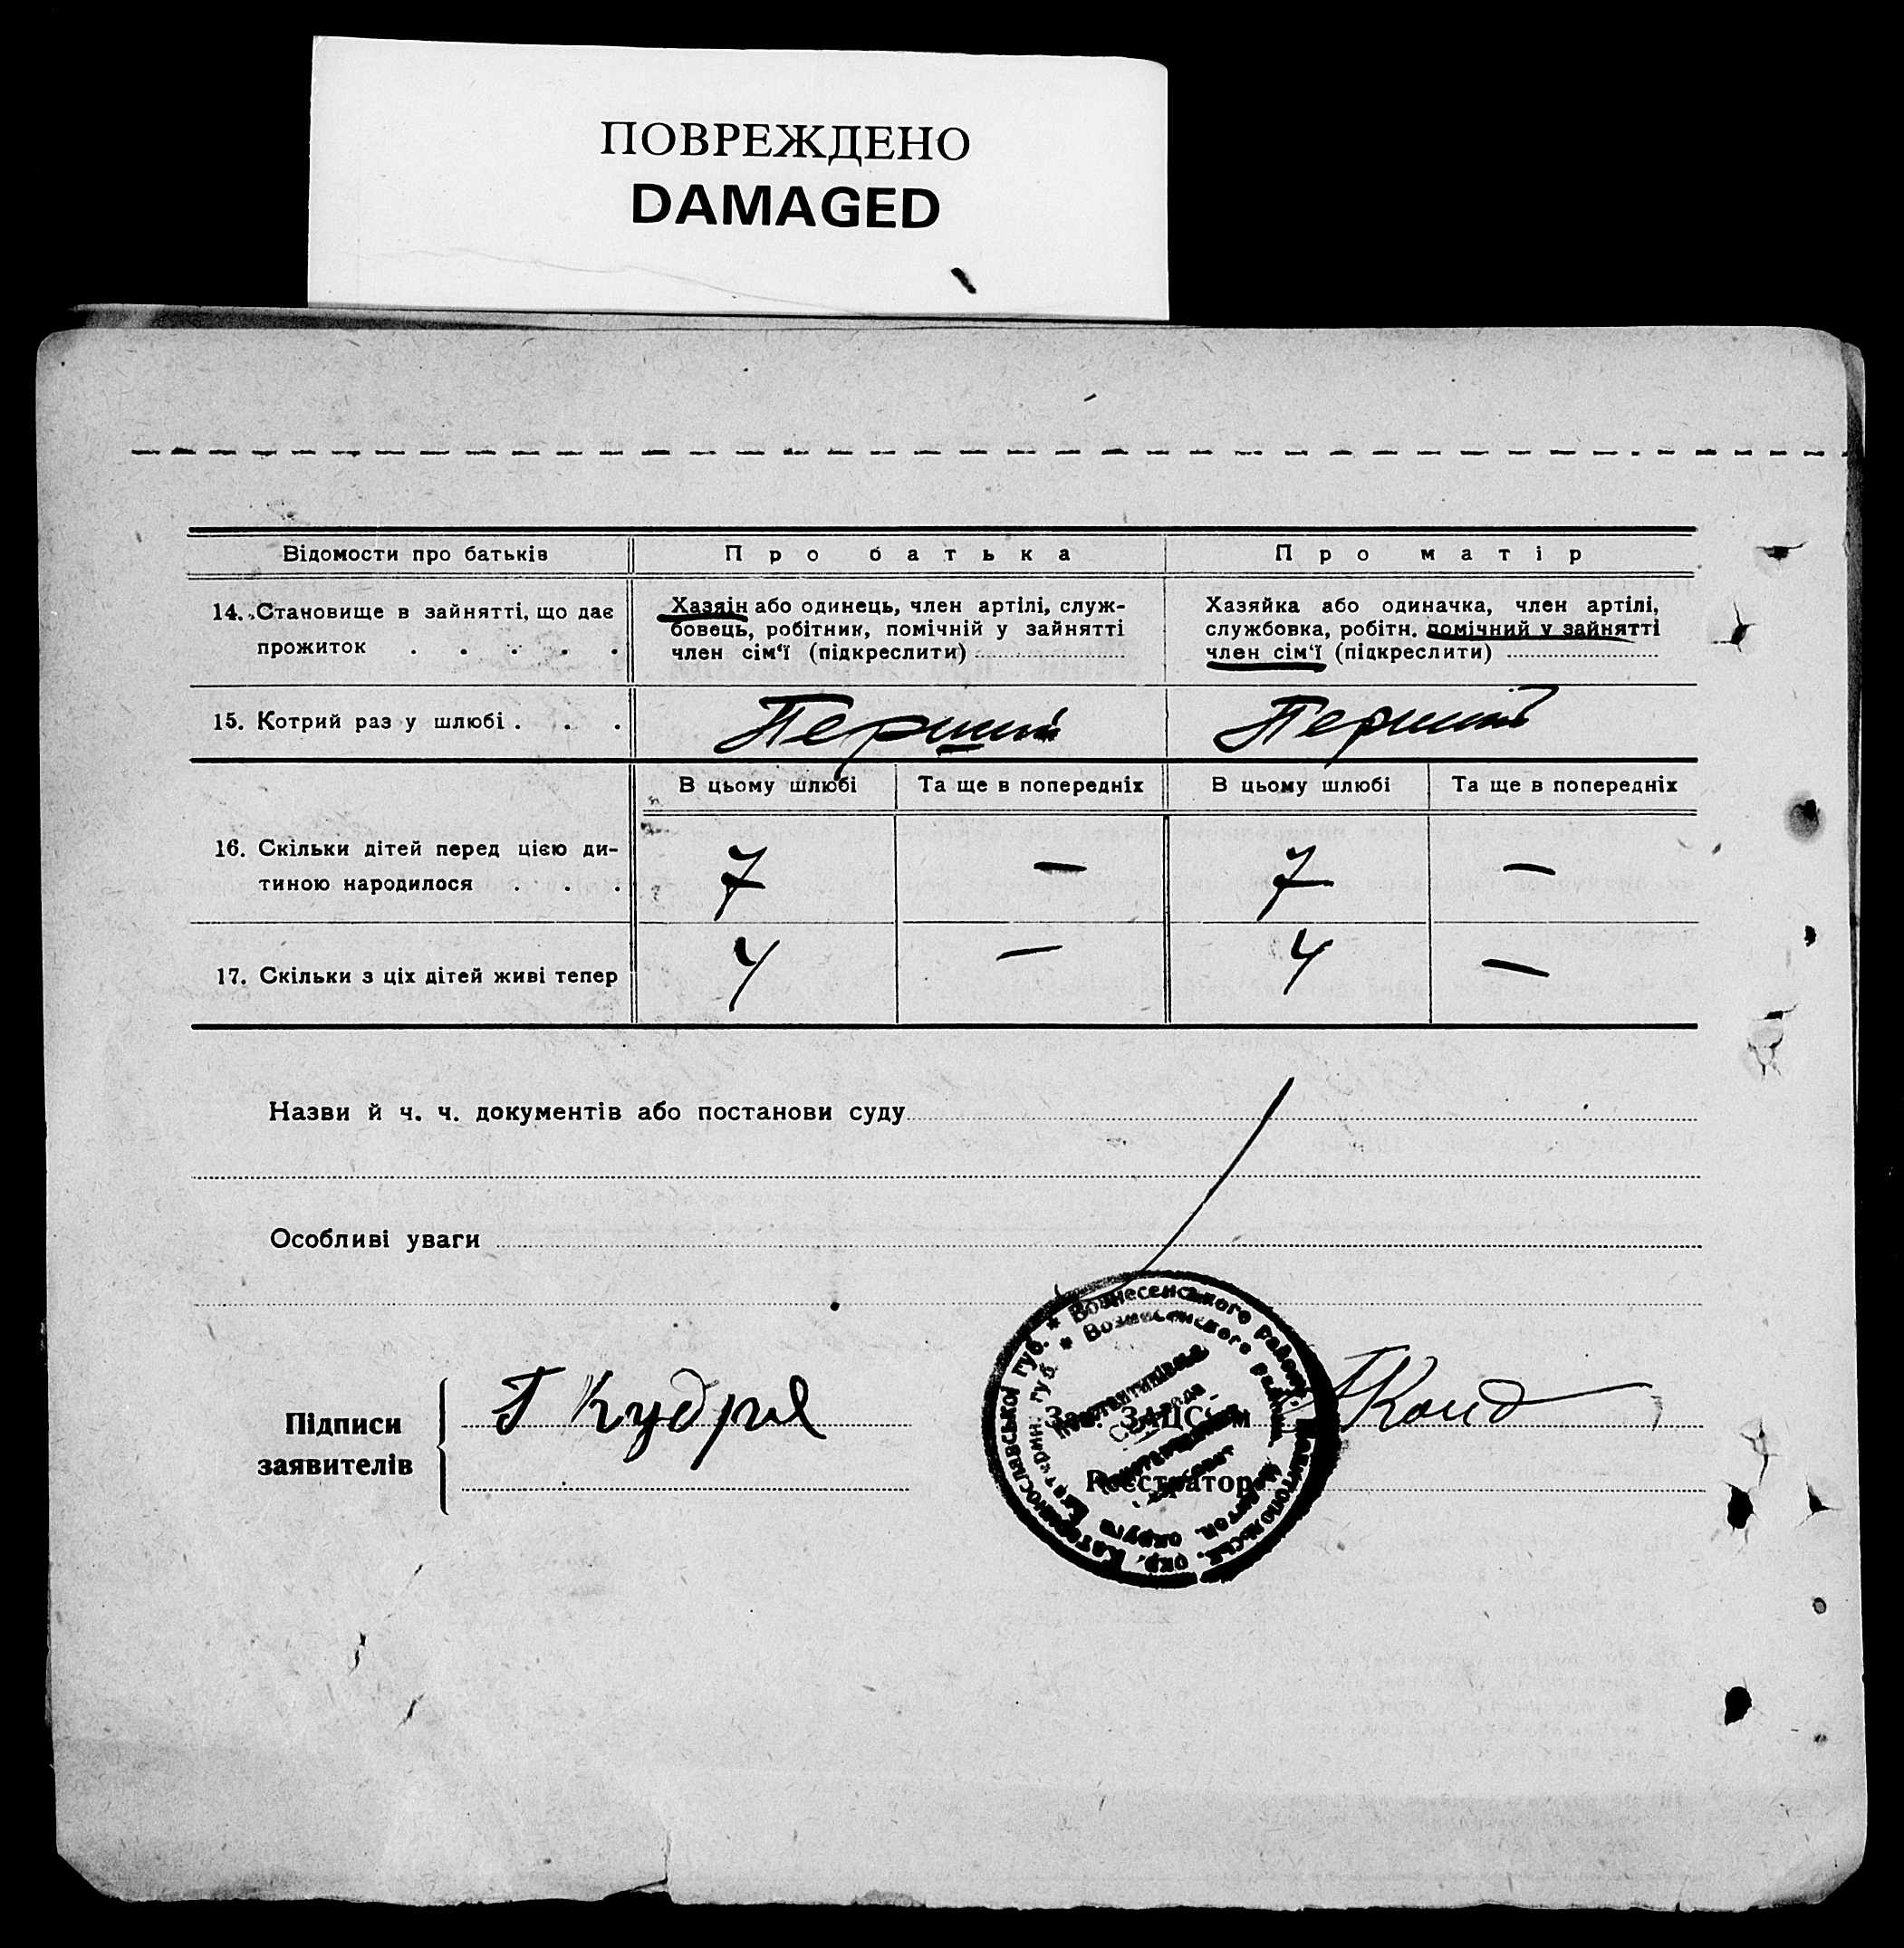 ПОВРЕЖДЕНО
DAMAGED
Відомости про батьків
Про батька
Про матір
14. Становище в зайнятті, що дає
прожиток . . . . .
Хазяїн або одинець, член артілі, служ-
бовець, робітник, помічній у зайнятті
член сім‘ї (підкреслити)
Хазяйка або одиначка, член артілі,
службовка, робітн. помічний у зайнятті
член сім‘ї (підкреслити)
15. Котрий раз у шлюбі . . .
Перший
Перший
В цьому шлюбі
Та ще в попередніх
В цьому шлюбі
Та ще в попередніх
16. Скільки дітей перед цією ди-
тиною народилося . . .
7
—
7
—
17. Скільки з ціх дітей живі тепер
4
—
4
—
Назви й ч. ч. документів або постанови суду
Особливі уваги
Підписи
заявителів
Г Кудря
Зав. ЗАЦС'ом
Реєстратор
* Вознесенського району, Мелитопольськ. окр. Катеринославської губ.
* Вознесенского района, Мелитоп. округа Екатерин. губ.